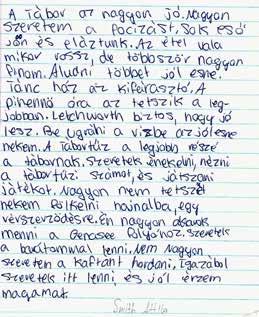 A Tábor az nagyon jó. Nagyon
szeretem a focizást. Sok eső
jön és eláztunk. Az étel vala
mikor rossz, de többször nagyon
finom. Aludni többet jól esne.
Tánc ház az kifárasztó. A
pihenő óra az tetszik a leg-
jobban. Letchworth biztos, nagy jó
lesz. Be ugrálni a vizbe az jól esne
nekem. A Tábortűz a legjobb része
a tábornak. Szeretek énekelni, nézni
a tábortűzi számot, és játszani
játékot. Nagyon nem tetszet
nekem fölkelni hajnalba, egy
vérszerződésre. Én nagyon akarok
menni a Genesee folyóhoz. Szeretek
a barátommal lenni. Nem nagyon
szeretem a kaftánt hordani. Igazából
szeretek itt lenni, és jól érzem
magamat.
Smith Attila